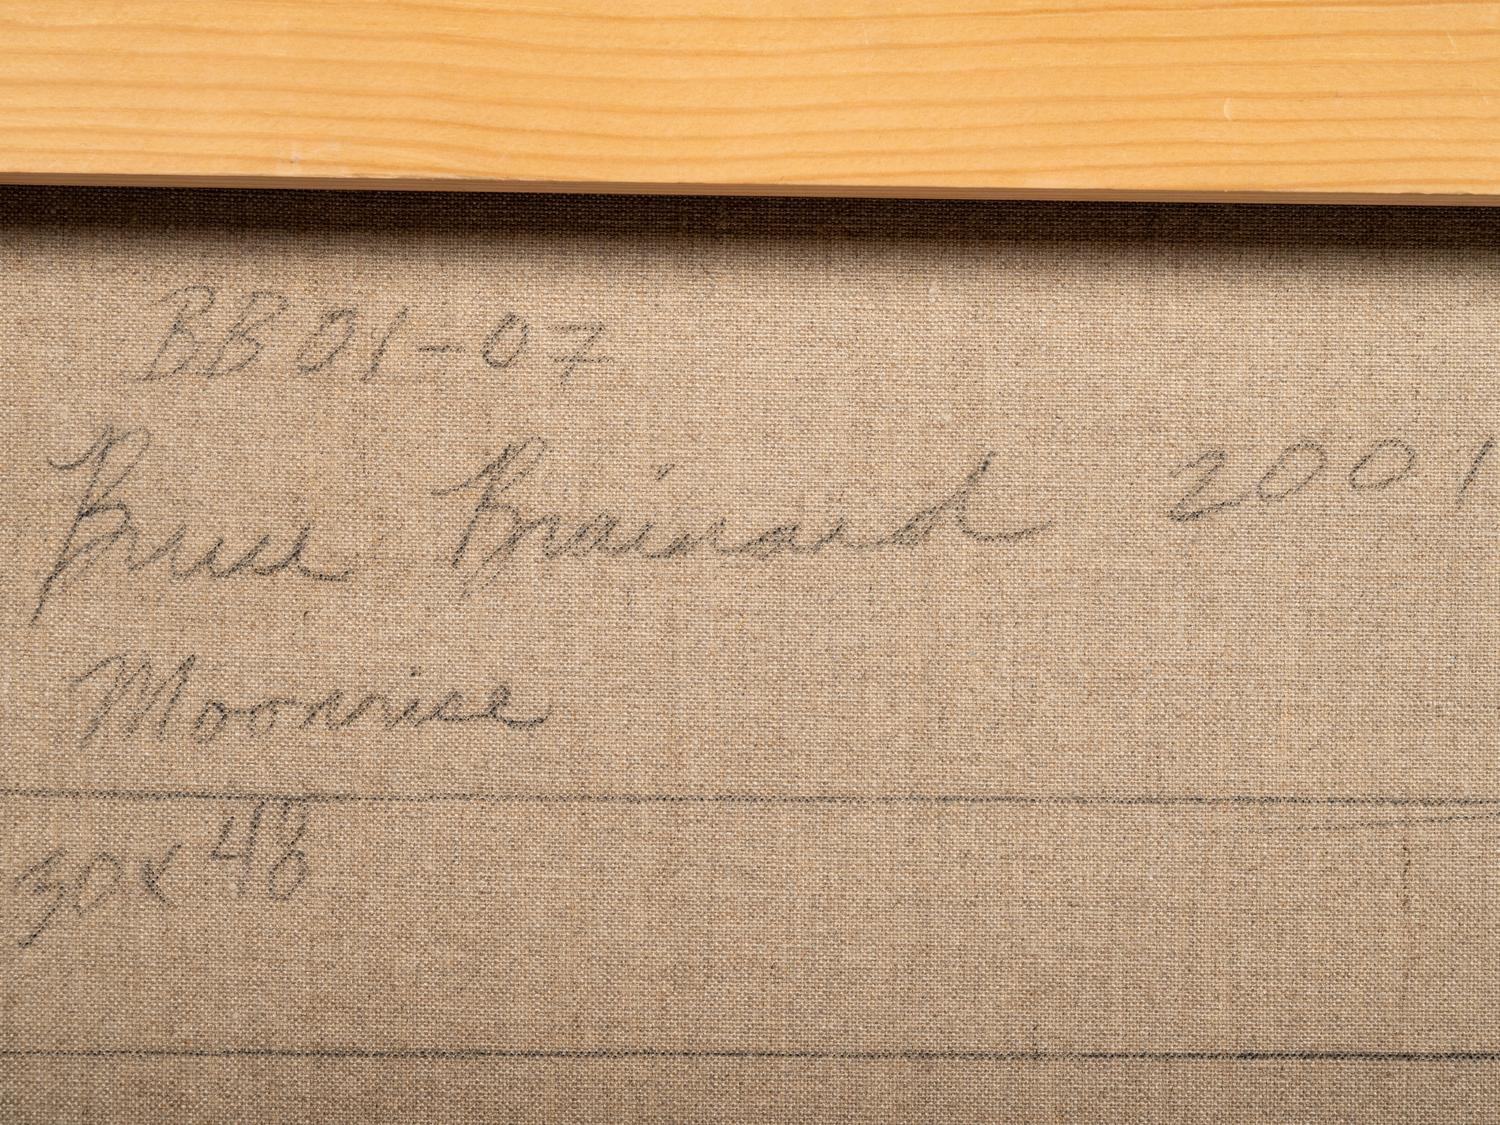 BB01-07
Bruce Brainard 2001
Moonrise
30x48